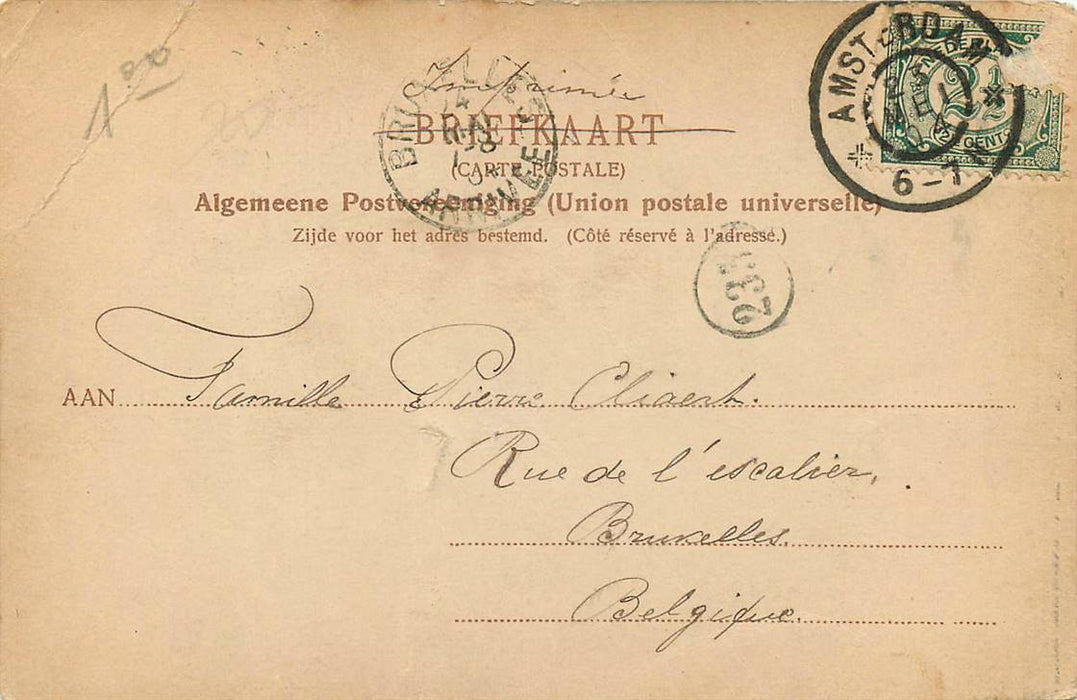 1 00
Imprimée
BRIEFKAART
(CARTE POSTALE)
Algemeene Postvereeniging (Union postale universelle)
Zijde voor het adres bestemd. (Côté réservé à l'adresse.)
AMSTERDAM
6-7
2½
CENTS
BRUXELLES
ARRIVEE
AAN Famille Pierre Cliaert.
Rue de l'escalier,
Bruxelles.
Belgique.